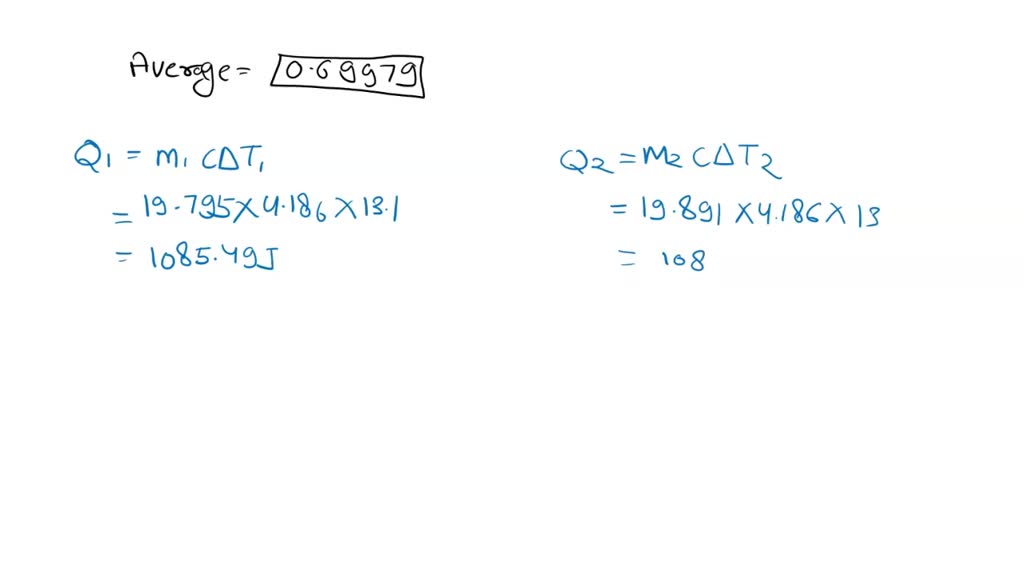 Average = 0.69979
Q1 = m1 CΔT1
= 19.795 × 4.186 × 13.1
= 1085.49J
Q2 = M2 CΔT2
= 19.891 × 4.186 × 13
= 108